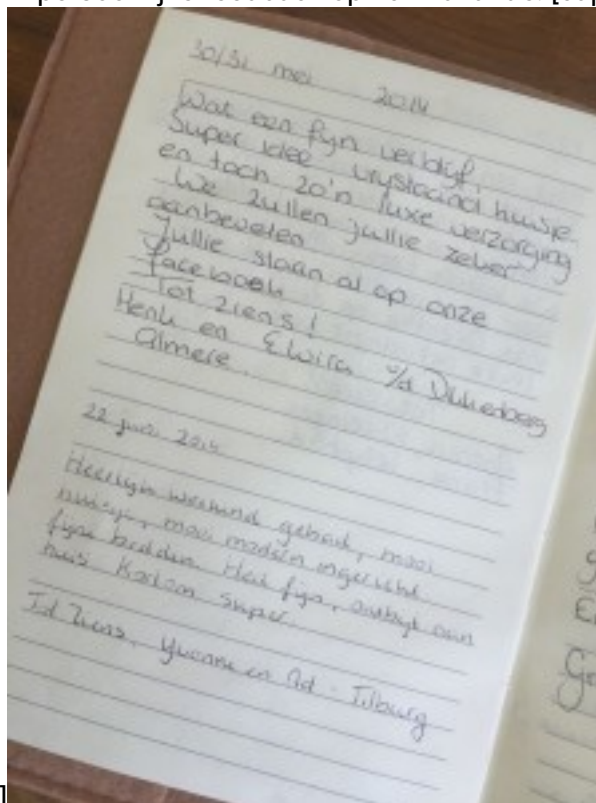 30/31 mei 2014
Wat een fijn verblijf.
Super idee vrijstaand huisje
en toch zo'n luxe verzorging
We zullen jullie zeker
aanbevelen
Jullie staan al op onze
facebook
Tot ziens!
Henk en Elwira v/d
Almere.
22 juni 2014
Heerlijk weekend gehad, mooi
huisje, mooi modern ingericht
fijne bedden. Heel fijn, ontbijt aan
huis Kortom super.
Tot Ziens, Yvonne en Ad - Tilburg